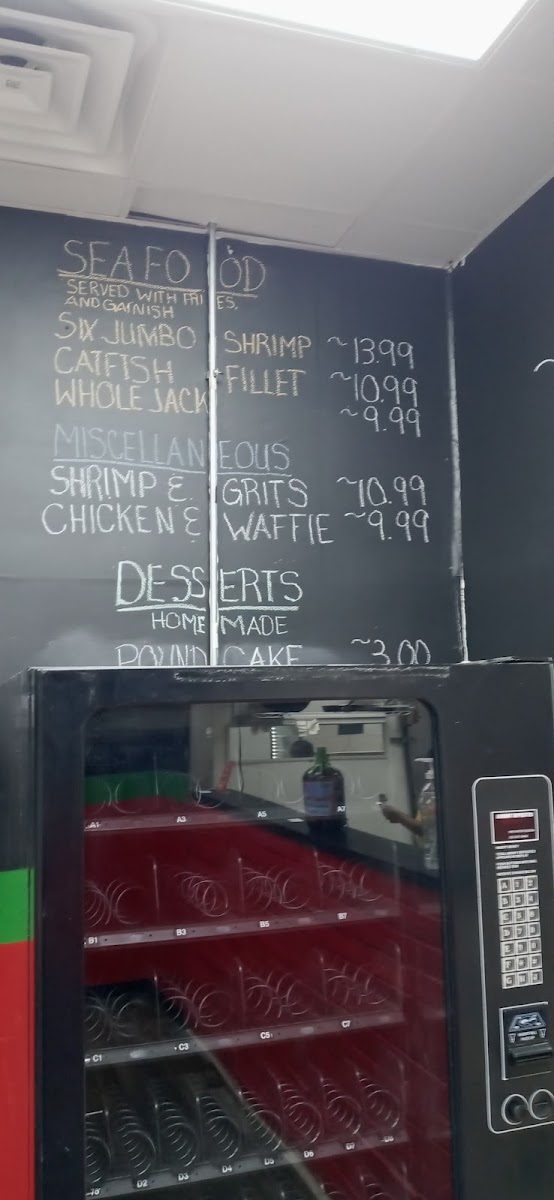 SEAFOOD
SERVED WITH FRIES,
AND GARNISH
SIX JUMBO SHRIMP ~13.99
CATFISH FILLET ~10.99
WHOLE JACK ~9.99
MISCELLANEOUS
SHRIMP & GRITS ~10.99
CHICKEN & WAFFIE ~9.99
DESSERTS
HOMEMADE
POUND CAKE ~3.00
A1 A3 A5 A7
B1 B3 B5 B7
C1 C3 C5 C7
D2 D3 D4 D5 D6 D7 D8